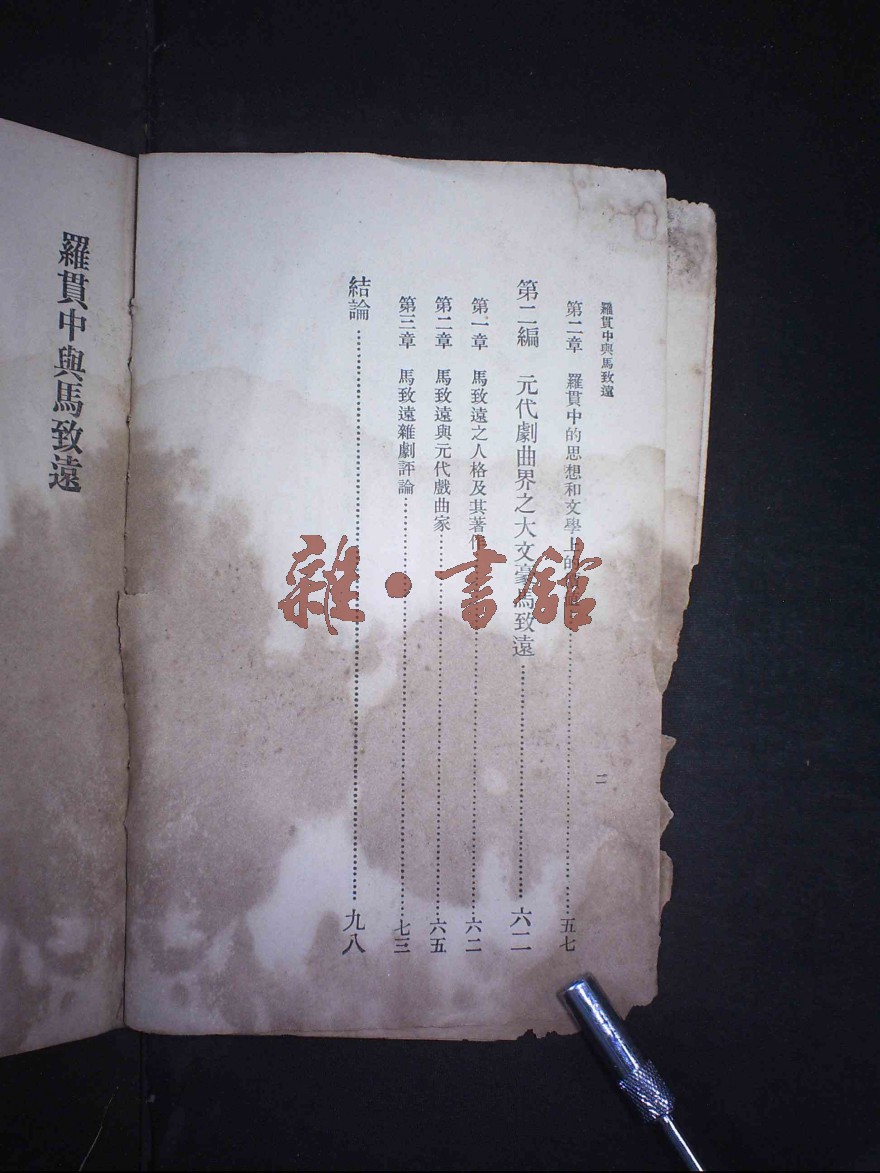 羅貫中與馬致遠
二
第二章 羅貫中的思想和文學上的…………五七
第二編 元代劇曲界之大文豪馬致遠…………六二
第一章 馬致遠之人格及其著作…………六二
第二章 馬致遠與元代戲曲家…………六五
第三章 馬致遠雜劇評論…………七三
結論…………九八
羅貫中與馬致遠
雜·書館